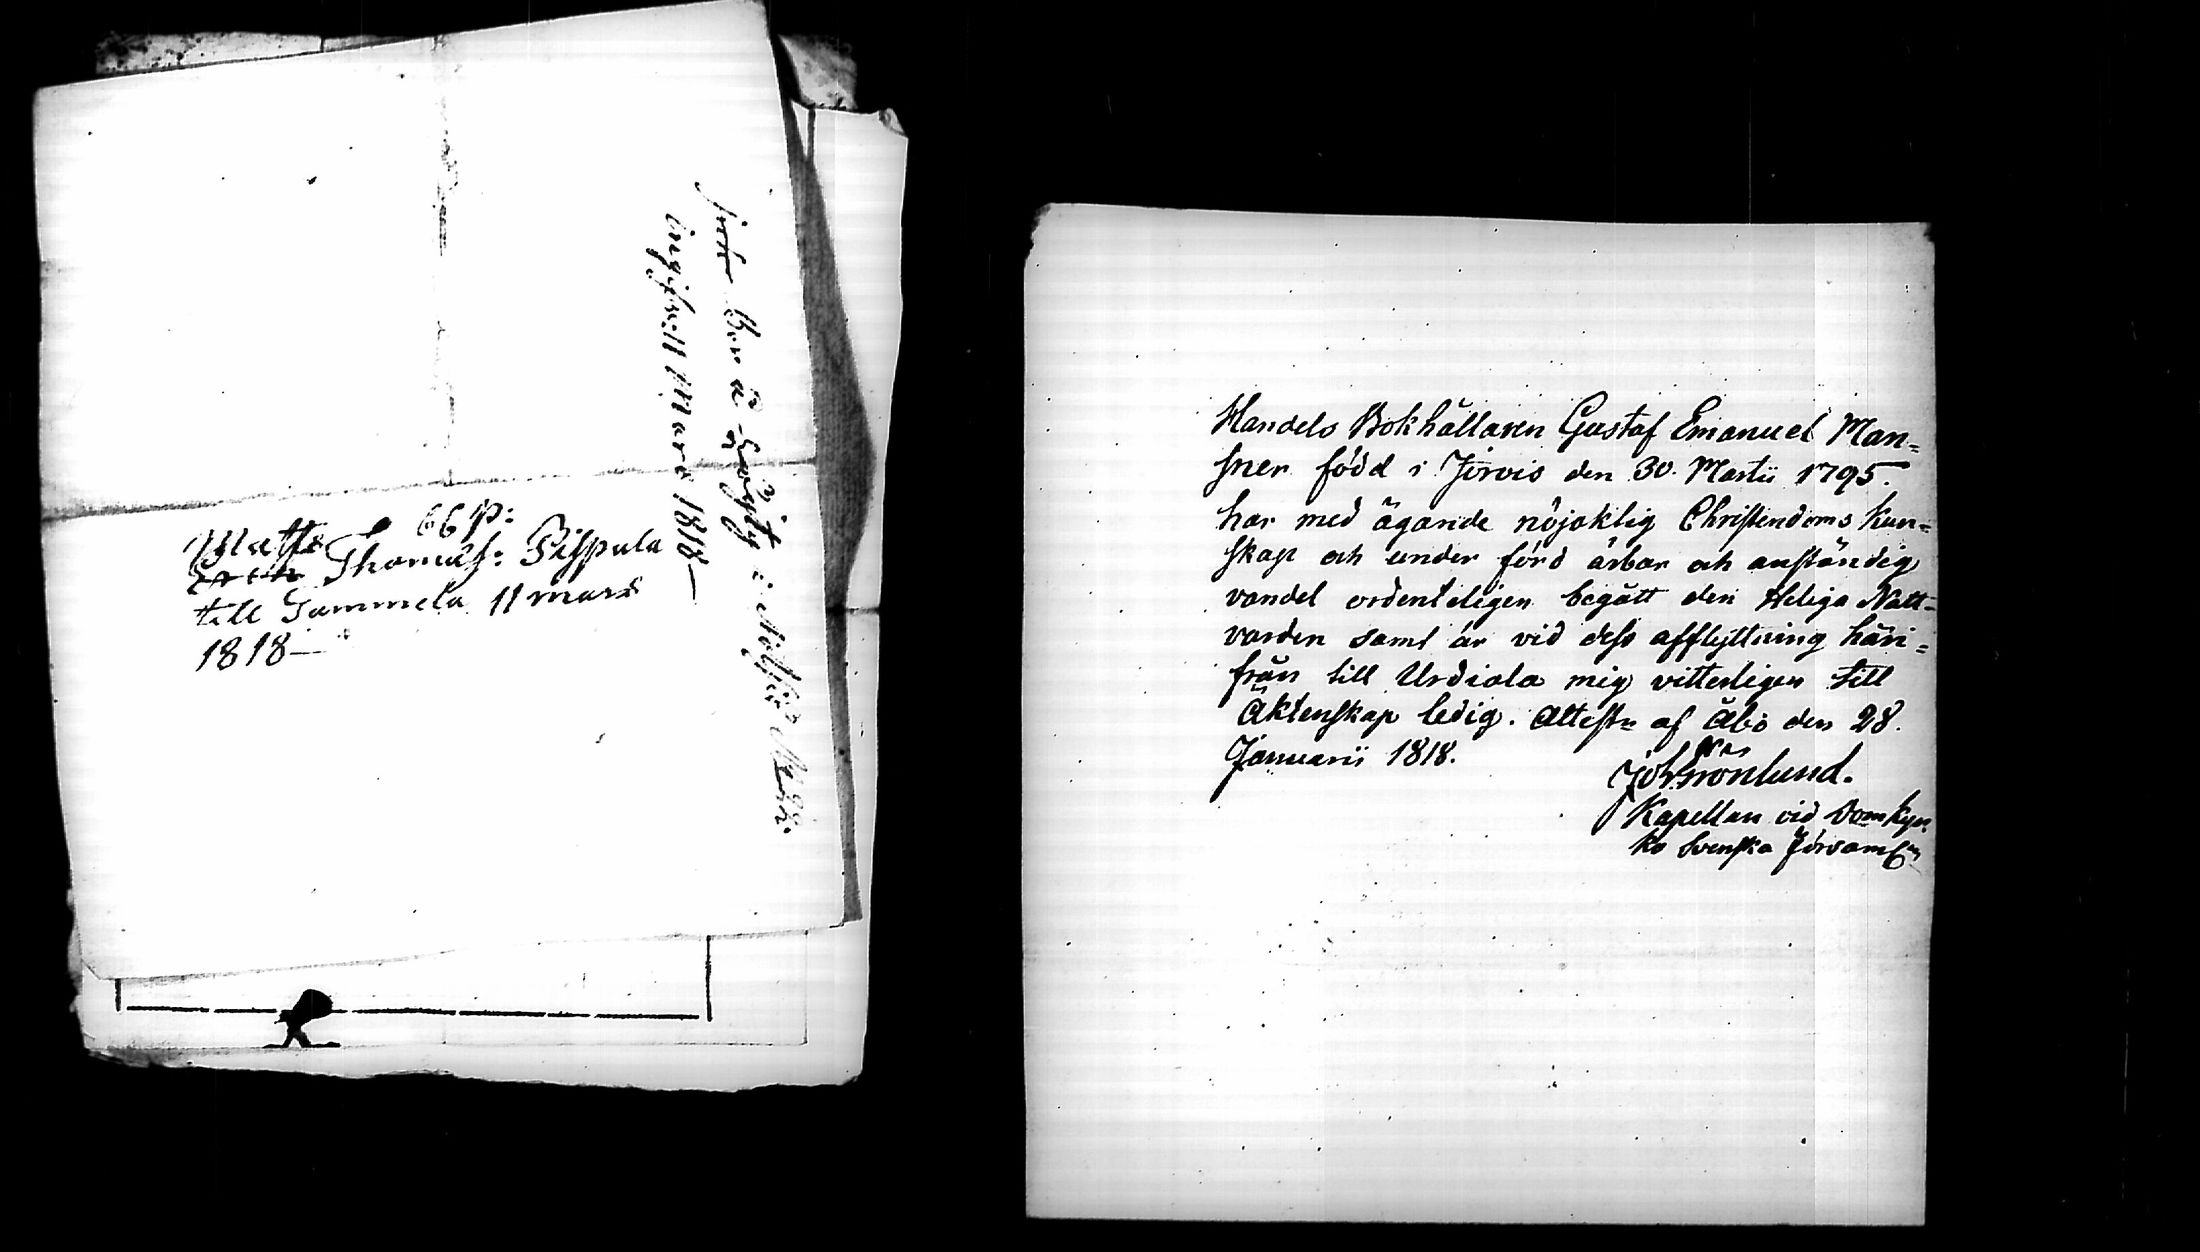 66 p:
Matts
Thomas: Pispala
till Tammela 11 mars
1818—
ingifvit 11 Mars 1818—
Handels Bokhållaren Gustaf Emanuel Man=
sner född i Jòrvis den 30 Martii 1795.
har med ägande nöjaktig Christendoms kun=
skap och under förd ärbar och anständig
vandel ordenteligen begått den Heliga Natt=
varden samt är vid dess afflyttning häri=
från till Urdiala mig vitterligen till
Äktenskap ledig. Attest= af Åbo den 28.
Januarii 1818.
Joh Grönlund.
Kapellan vid Domkyr
ko Svenska